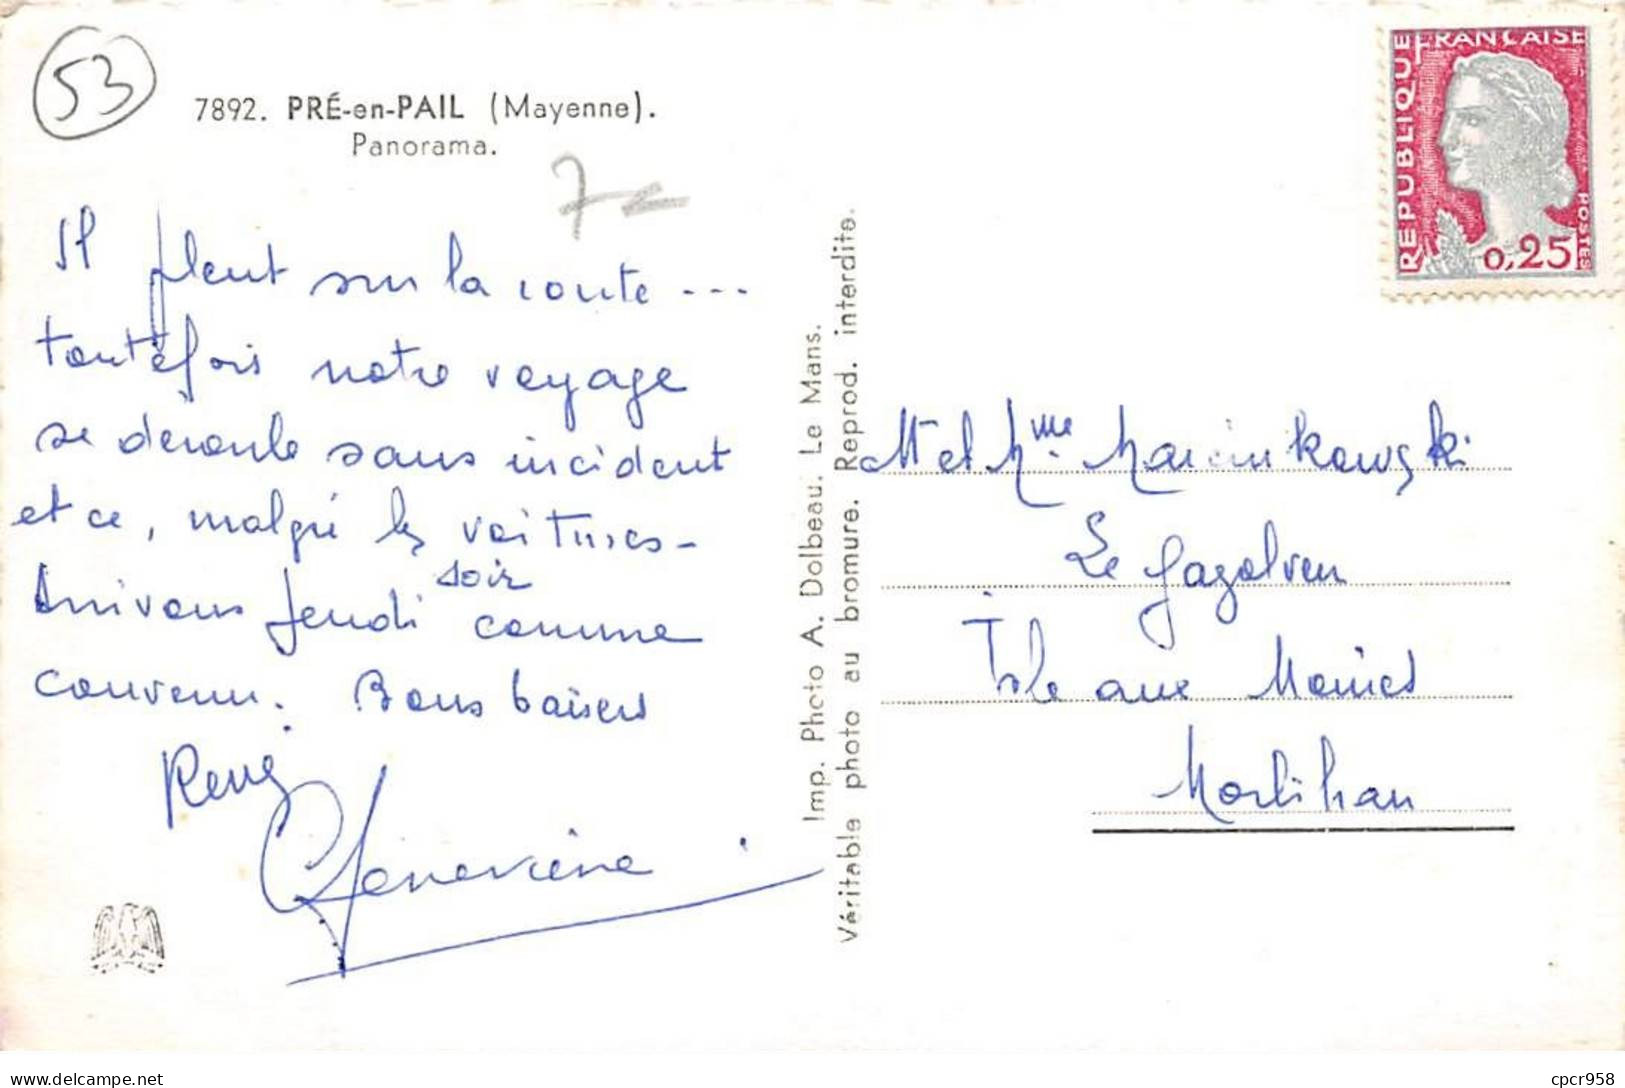 53
7892. PRÉ-en-PAIL (Mayenne).
Panorama.
7€
Il pleut sur la route ...
toutefois notre voyage
se déroule sans incident
et ce, malgré les voitures -
Arrivons Jeudi soir comme
convenu. Bons baisers
René
Geneviève
Imp. Photo A. Dolbeau. Le Mans.
Véritable photo au bromure. Reprod. interdite.
RÉPUBLIQUE FRANÇAISE
POSTES
0,25
M et Mme Marcinkowski
Le Gazolven
Isle aux Moines
Morbihan
delcampe.net
cpcr958